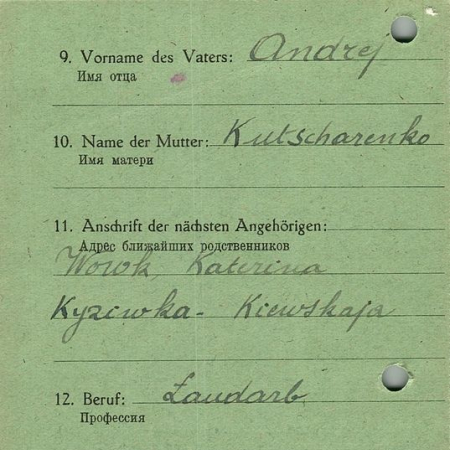 9. Vorname des Vaters: Andrej
Имя отца
10. Name der Mutter: Kutscharenko
Имя матери
11. Anschrift der nächsten Angehörigen:
Адрес ближайших родственников
Wowk, Katerina
Kyziwka - Kiewskaja
12. Beruf: Landarb.
Профессия